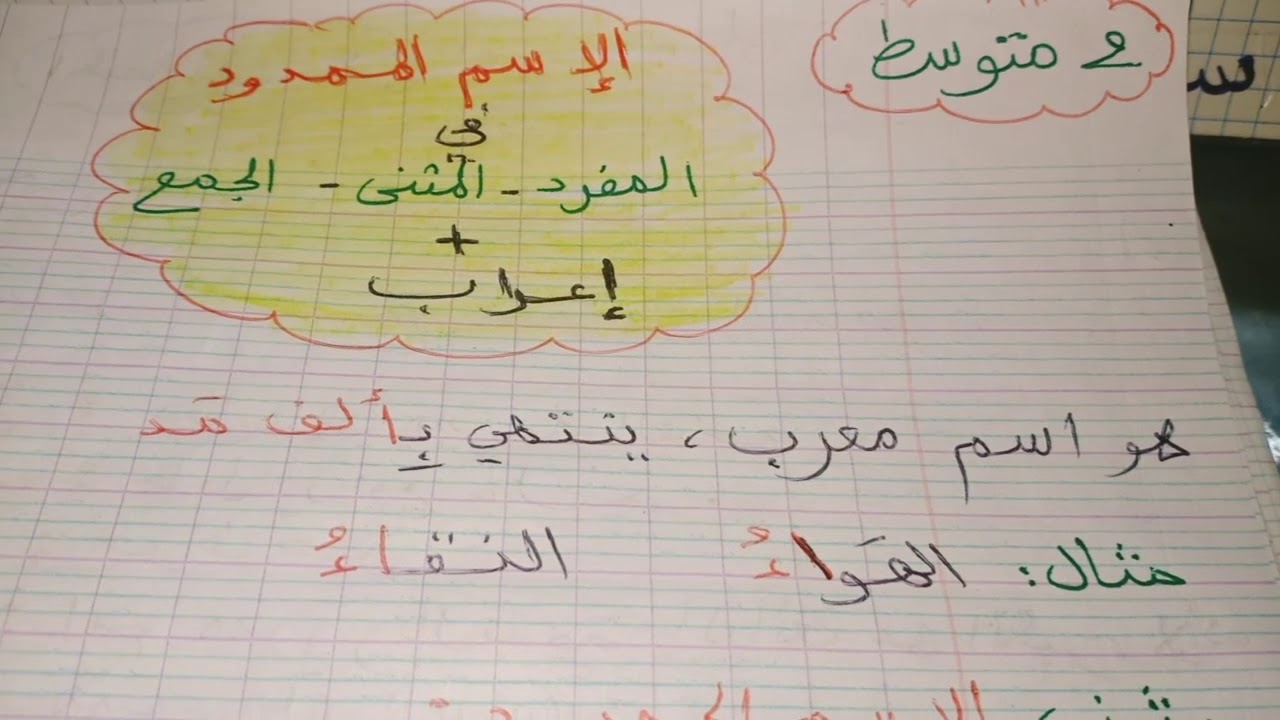 2 متوسط
الإسم الممدود
في
المفرد - المثنى - الجمع
+
إعراب
هو اسم معرب، ينتهي بِألف مَد
مثال: الهَواءُ النقاءُ